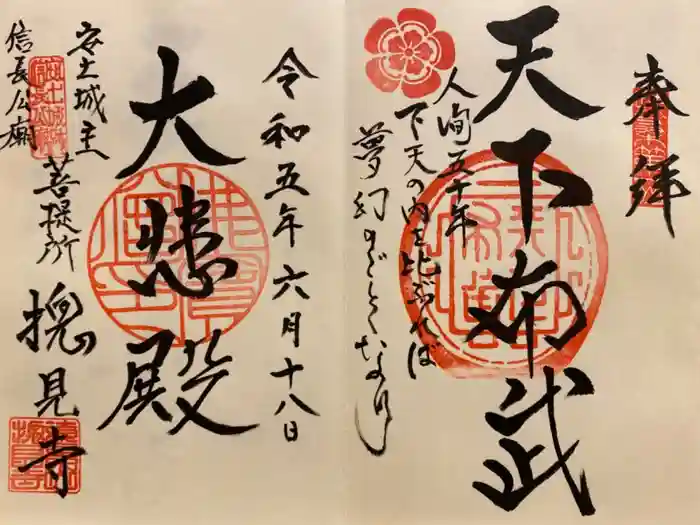 奉拝
天下布武
人間五十年
下天の内を比ぶれば
夢幻のごとくなり
令和五年六月十八日
大悲殿
安土城主
信長公廟
菩提所
摠見寺